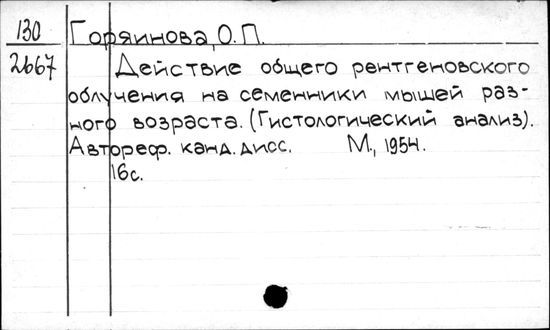 130 Горяинова, О. П.
2667 Действие общего рентгеновского
облучения на семенники мышей раз-
ного возраста. (Гистологический анализ).
Автореф. канд. дисс. М., 1954.
16с.